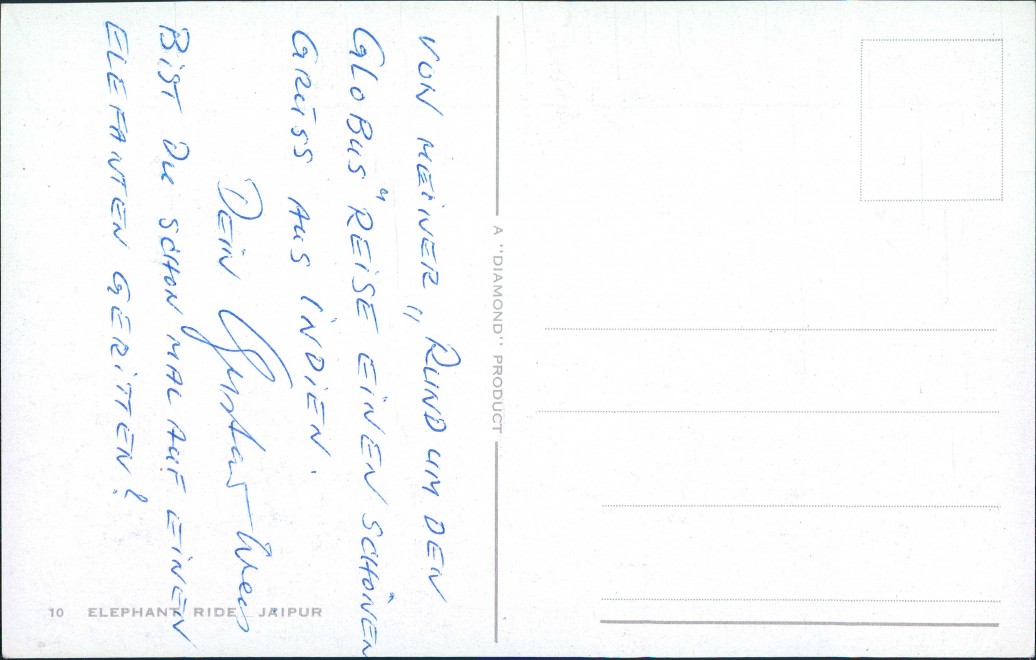 VON MEINER „RUND UM DEN
GLOBUS" REISE EINEN SCHÖNEN
GRUSS AUS INDIEN.
DEIN Gustav
BIST DU SCHON MAL AUF EINEN
ELEFANTEN GERITTEN?
A "DIAMOND" PRODUCT
10 ELEPHANT RIDE JAIPUR